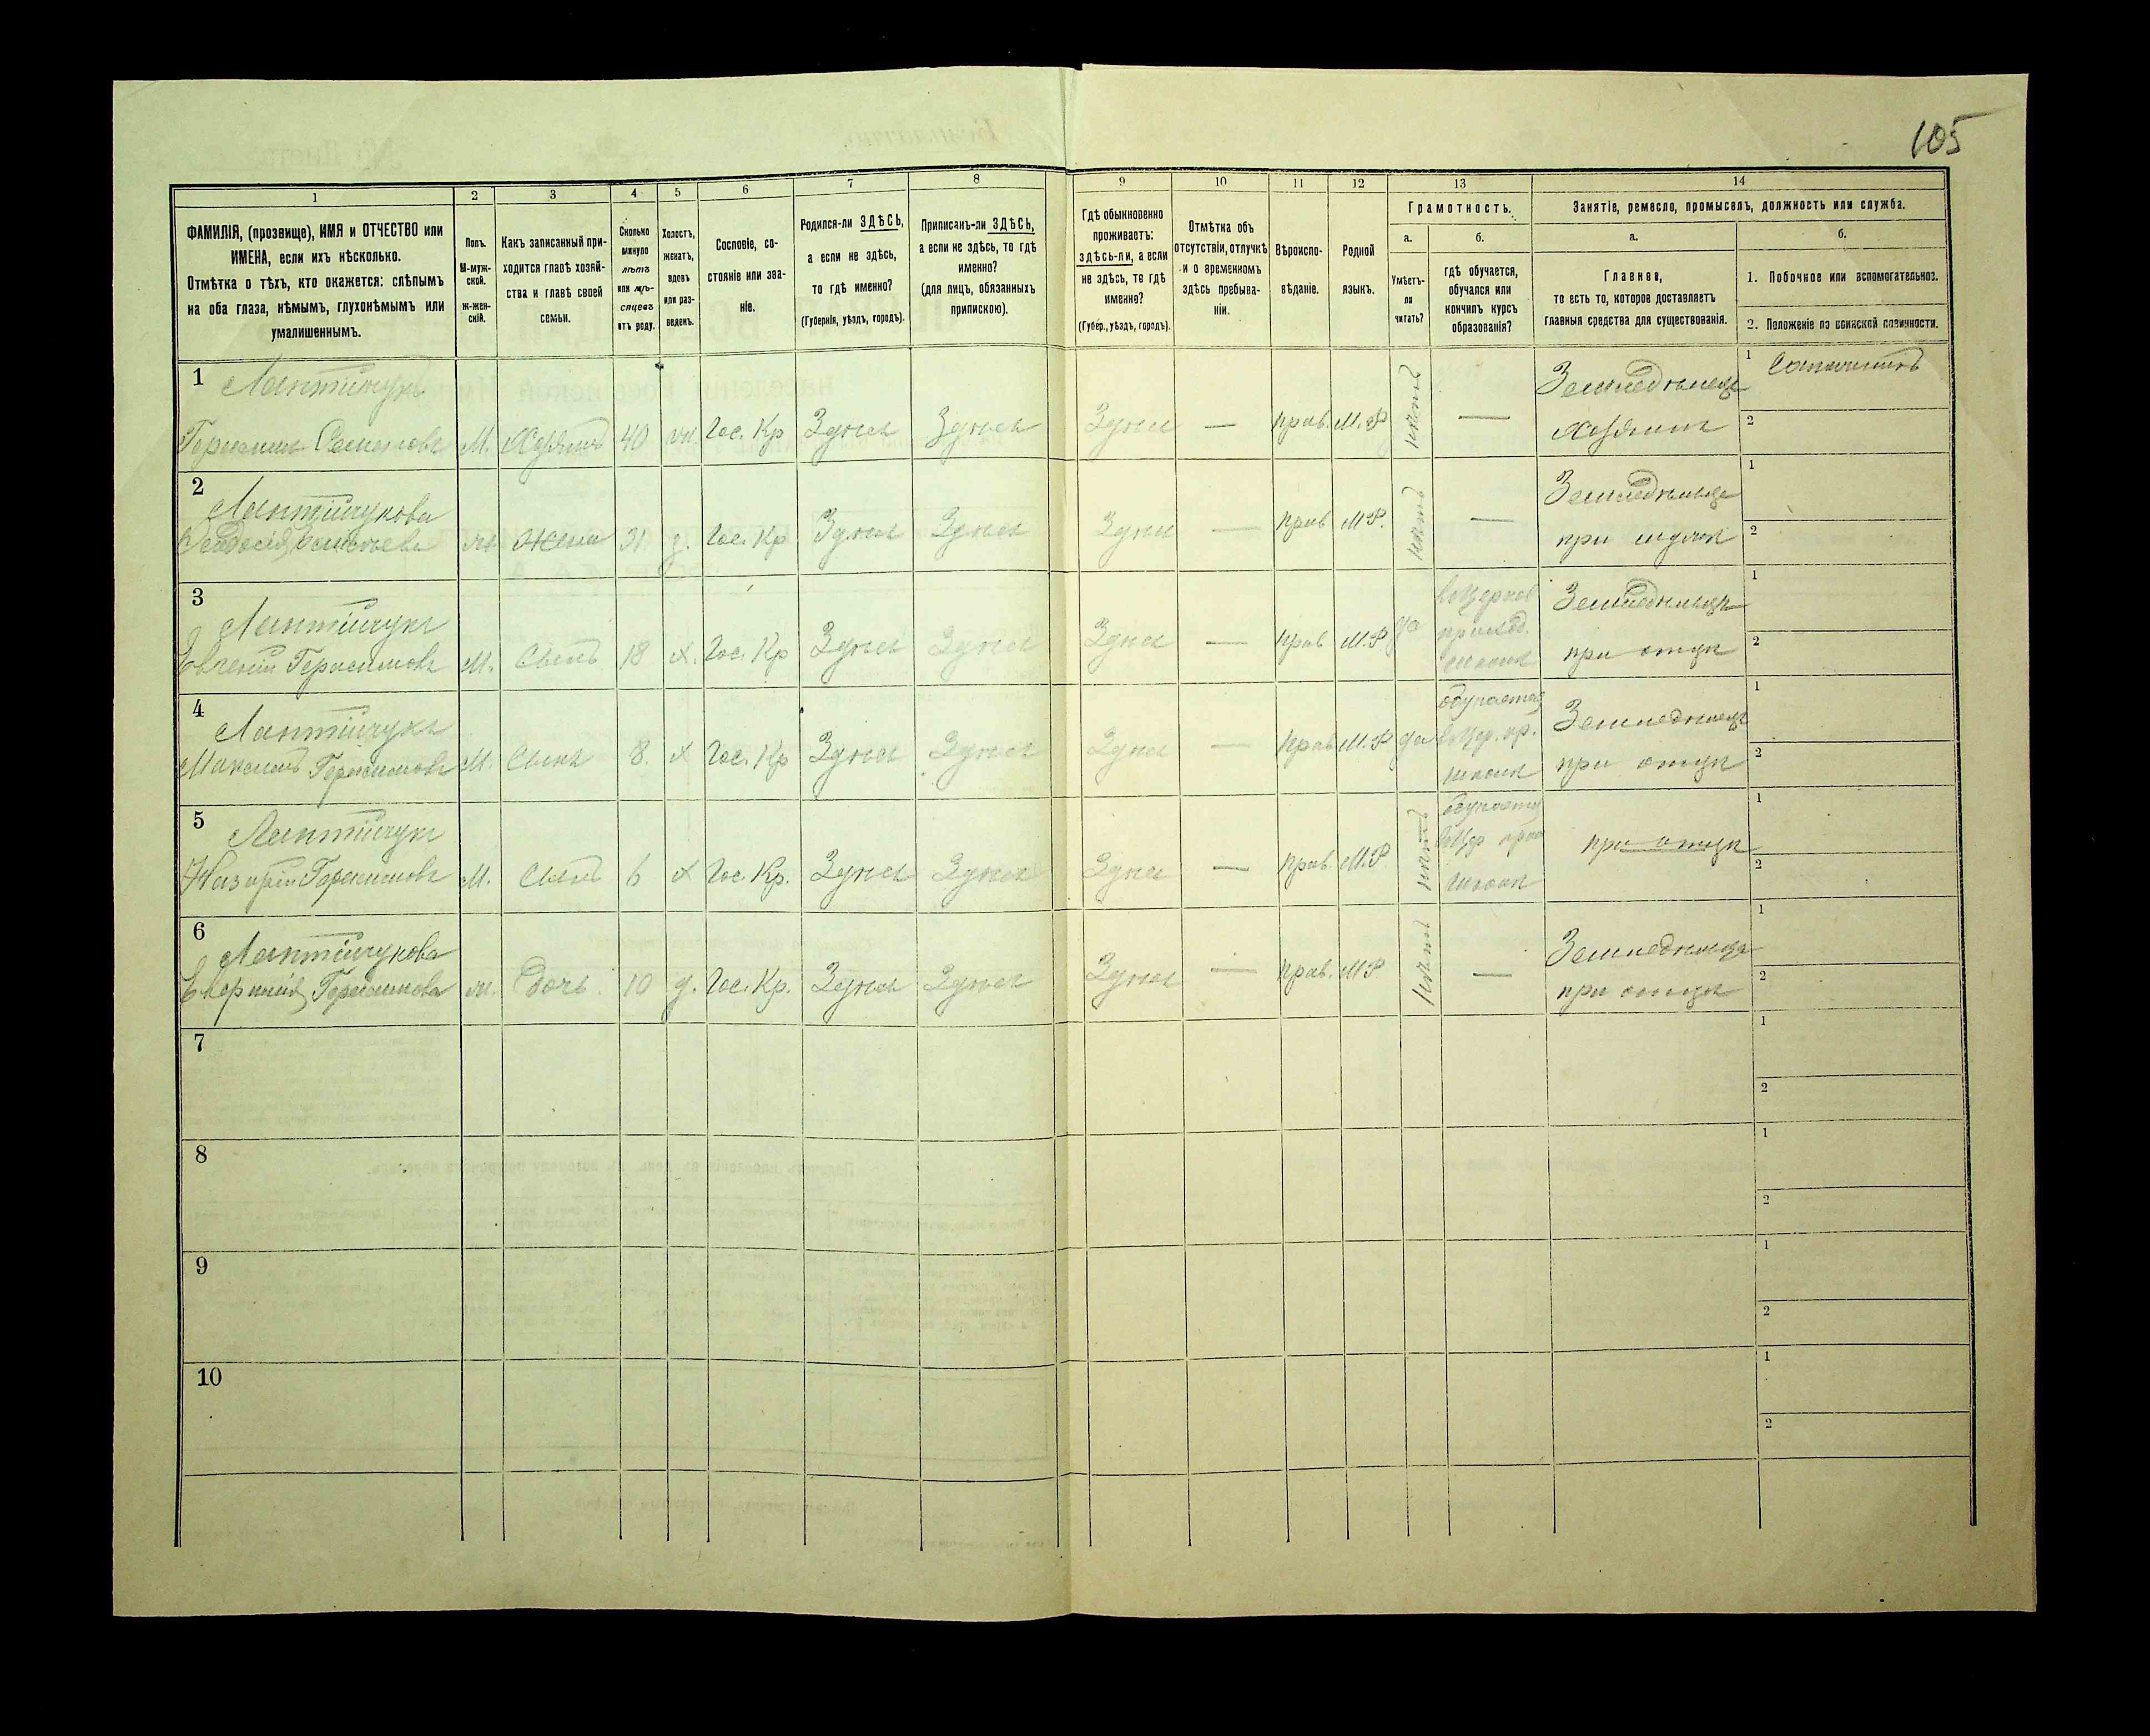 105
1
2
3
4
5
6
7
8
9
10
11
12
13
14
ФАМИЛІЯ, (прозвище), ИМЯ и ОТЧЕСТВО или
ИМЕНА, если ихъ нѣсколько.
Отмѣтка о тѣхъ, кто окажется: слѣпымъ
на оба глаза, нѣмымъ, глухонѣмымъ или
умалишеннымъ.
Полъ.
М-муж-
ской.
ж-жен-
скій.
Какъ записанный при-
ходится главѣ хозяй-
ства и главѣ своей
семьи.
Сколько
минуло
лѣтъ
или мѣ-
сяцевъ
отъ роду.
Холостъ,
женатъ,
вдовъ
или раз-
веденъ.
Сословіе, со-
стояніе или зва-
ніе.
Родился-ли ЗДѢСЬ,
а если не здѣсь,
то гдѣ именно?
(Губернія, уѣздъ, городъ).
Приписанъ-ли ЗДѢСЬ,
а если не здѣсь, то гдѣ
именно?
(для лицъ, обязанныхъ
припискою).
Гдѣ обыкновенно
проживаетъ:
здѣсь-ли, а если
не здѣсь, то гдѣ
именно?
(Губер., уѣздъ, городъ).
Отмѣтка объ
отсутствіи, отлучкѣ
и о временномъ
здѣсь пребыва-
ніи.
Вѣроиспо-
вѣданіе.
Родной
языкъ.
Грамотность.
а.
Умѣетъ-
ли
читать?
б.
гдѣ обучается,
обучался или
кончилъ курсъ
образованія?
Занятіе, ремесло, промыселъ, должность или служба.
а.
Главное,
то есть то, которое доставляетъ
главныя средства для существованія.
б.
1. Побочное или вспомогательное.
2. Положеніе по воинской повинности.
1 Лаптічукъ
Герасимъ М. Хозяинъ 40 ж. Гос. Кр Здѣсь Здѣсь Здѣсь — прав. М. Р нѣтъ — Земледѣлецъ
хозяинъ
1
2
2 Лаптічукова
Феодосія ж. Жена 31 з. Гос. Кр Здѣсь Здѣсь Здѣсь — прав М Р. нѣтъ — Земледѣлица
при мужѣ
1
2
3 Лаптічукъ
Евгеній Герасимовъ М. Сынъ 18 х. Гос. Кр Здѣсь Здѣсь Здѣсь — прав М.Р да в церков
приход.
школѣ
Земледѣлецъ
при отцѣ
1
2
4 Лаптічукъ
Максимъ Герасимовъ М. Сынъ 8. х Гос. Кр Здѣсь Здѣсь Здѣсь — прав М. Р да обучается
в Цер. пр.
школѣ
Земледѣлецъ
при отцѣ
1
2
5 Лаптічукъ
Назарій Герасимовъ М. Сынъ 6 х Гос. Кр. Здѣсь Здѣсь Здѣсь — прав М.Р нѣтъ обучается
в Цер прих
школѣ
при отцѣ
1
2
6 Лаптічукова
Герасимова ж. Дочь 10 д. Гос. Кр. Здѣсь Здѣсь Здѣсь — прав. М Р. нѣтъ — Земледѣлица
при отцѣ
1
2
7
1
2
8
1
2
9
1
2
10
1
2